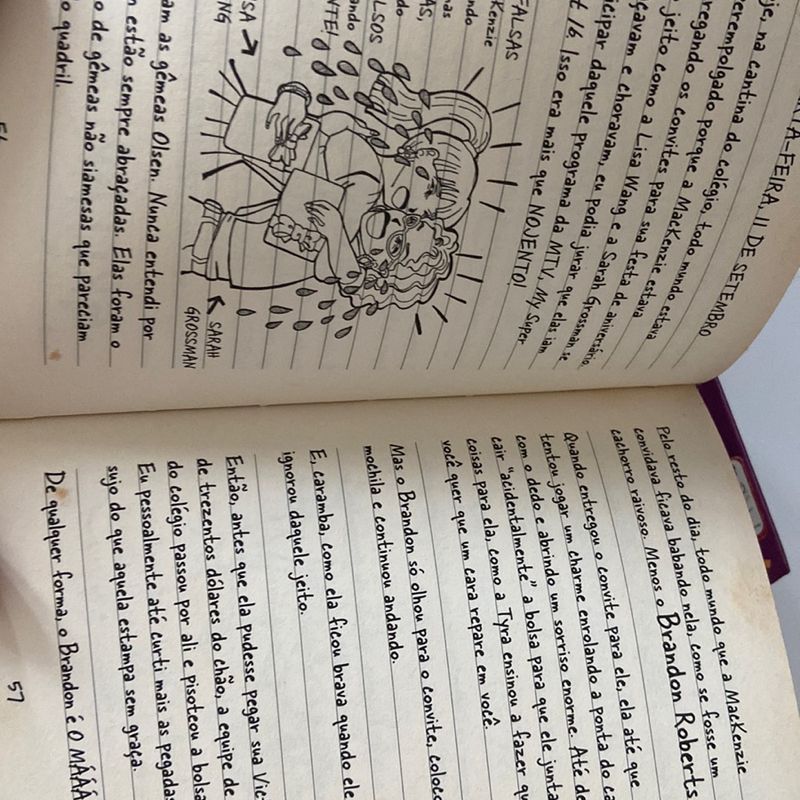 TA-FEIRA, 11 DE SETEMBRO
je, na cantina do colégio, todo mundo estava
erempolgado porque a MacKenzie estava
regando os convites para sua festa de aniversário.
jeito como a Lisa Wang e a Sarah Grossman se
çavam e choravam, eu podia jurar que elas iam
icipar daquele programa da MTV, My Super
t 16. Isso era mais que NOJENTO!
FALSAS
Kenzie
ndo
nas
ÁS,
do
LSOS
ando
NTE!
SA
NG
SARAH
GROSSMAN
am as gêmeas Olsen. Nunca entendi por
n estão sempre abraçadas. Elas foram o
o de gêmeas não siamesas que pareciam
o quadril.
56
Pelo resto do dia, todo mundo que a MacKenzie
convidava ficava babando nela, como se fosse um
cachorro raivoso. Menos o Brandon Roberts
Quando entregou o convite para ele, ela até que
tentou jogar um charme enrolando a ponta do ca
com o dedo e abrindo um sorriso enorme. Até de
cair "acidentalmente" a bolsa para que ele junta
coisas para ela, como a Tyra ensinou a fazer qu
você quer que um cara repare em você.
Mas o Brandon só olhou para o convite, coloc
mochila e continuou andando.
E, caramba, como ela ficou brava quando ele
ignorou daquele jeito.
Então, antes que ela pudesse pegar sua Vic
de trezentos dólares do chão, a equipe de
do colégio passou por ali e pisoteou a bolsa
Eu pessoalmente até curti mais as pegadas
sujo do que aquela estampa sem graça.
De qualquer forma, o Brandon é O MÁÁÁ
57